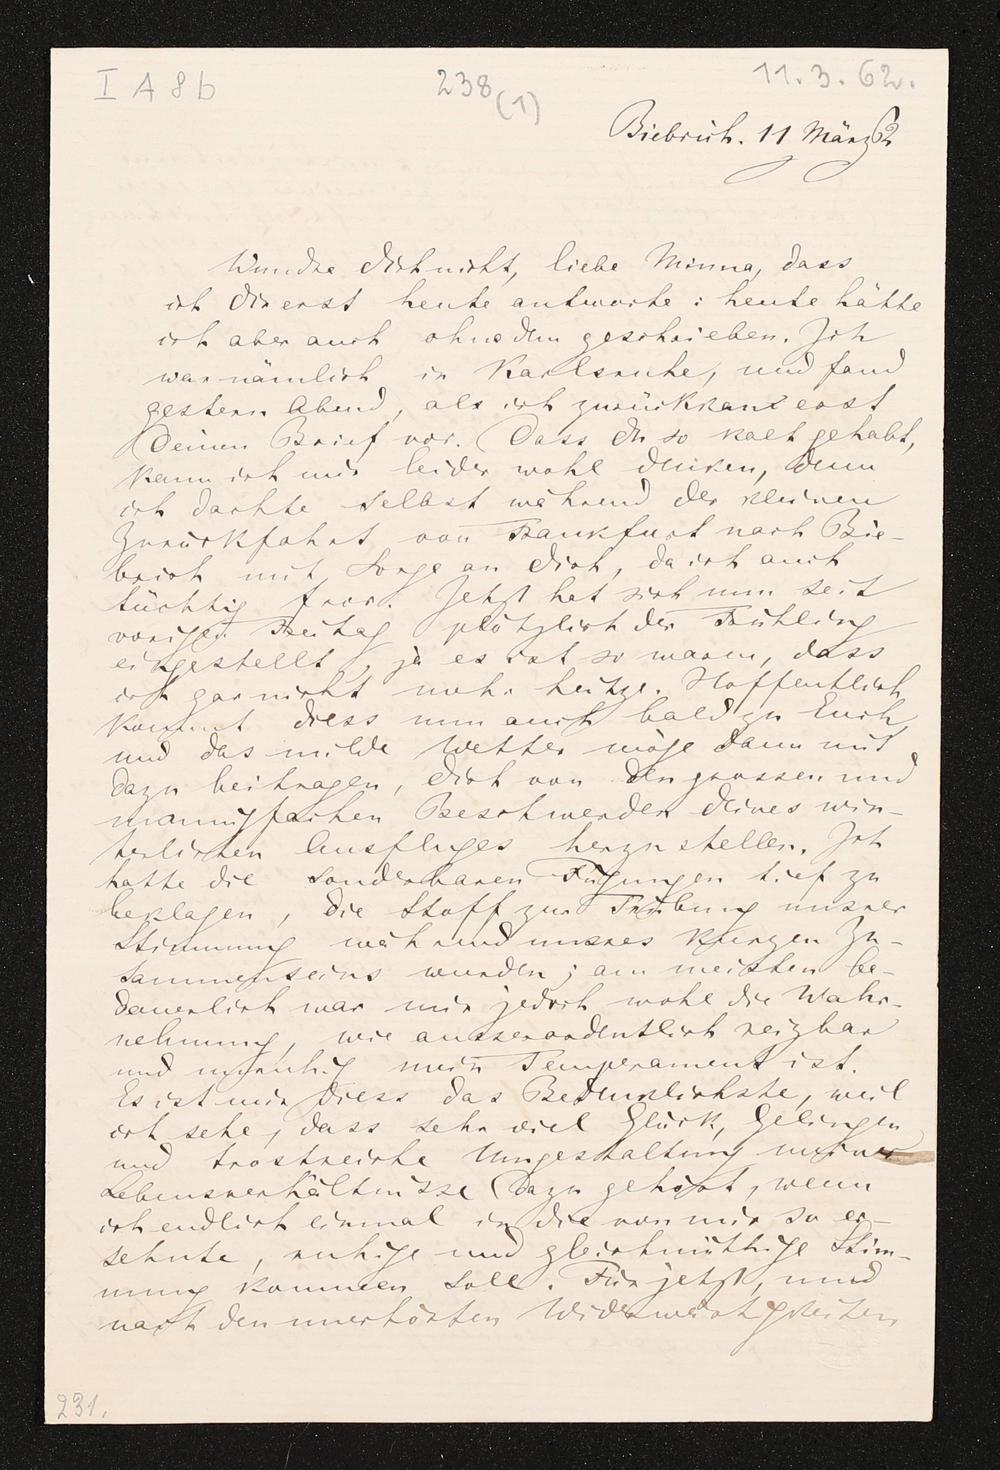 I A 8 b
238 (1)
11. 3. 62.
Biebrich. 11 März 62
Wundre Dich nicht, liebe Minna, dass
ich Dir erst heute antworte: heute hätte
ich aber auch ohnedem geschrieben. Ich
war nämlich in Karlsruhe, und fand
gestern Abend, als ich zurückkam erst
Deinen Brief vor. Dass Du so kalt gehabt,
kann ich mir leider wohl denken, denn
ich dachte selbst während der kleinen
Zurückfahrt von Frankfurt nach Bie-
brich mit Sorge an Dich, da ich auch
tüchtig fror. Jetzt hat sich nun seit
vorigen Freitag plötzlich der Frühling
eingestellt, ja es ist so warm, dass
ich gar nicht mehr heitze. Hoffentlich
kommt diess nun auch bald zu Euch,
und das milde Wetter möge dann mit
dazu beitragen, Dich von den grossen und
mannigfachen Beschwerden Deines win-
terlichen Ausfluges herzustellen. Ich
hatte die sonderbaren Fügungen tief zu
beklagen, die Stoff zur Trübung unsrer
Stimmung während unsres kurzen Zu-
sammenseins wurden; am meisten be-
dauerlich war mir jedoch wohl die Wahr-
nehmung, wie ausserordentlich reizbar
und unruhig mein Temperament ist.
Es ist mir diess das Bedenklichste, weil
ich sehe, dass sehr viel Glück, Gelingen
und trostreiche Umgestaltung meiner
Lebensverhältnisse dazu gehört, wenn
ich endlich einmal in die von mir so er-
sehnte, ruhige und gleichmüthige Stim-
mung kommen soll. Für jetzt, und
nach den unerhörten Widerwärtigkeiten
231.